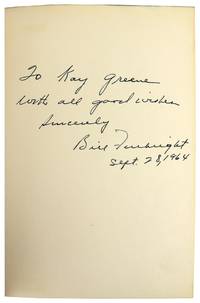 To Kay Greene
with all good wishes
Sincerely
Bill Fulbright
Sept. 28, 1964